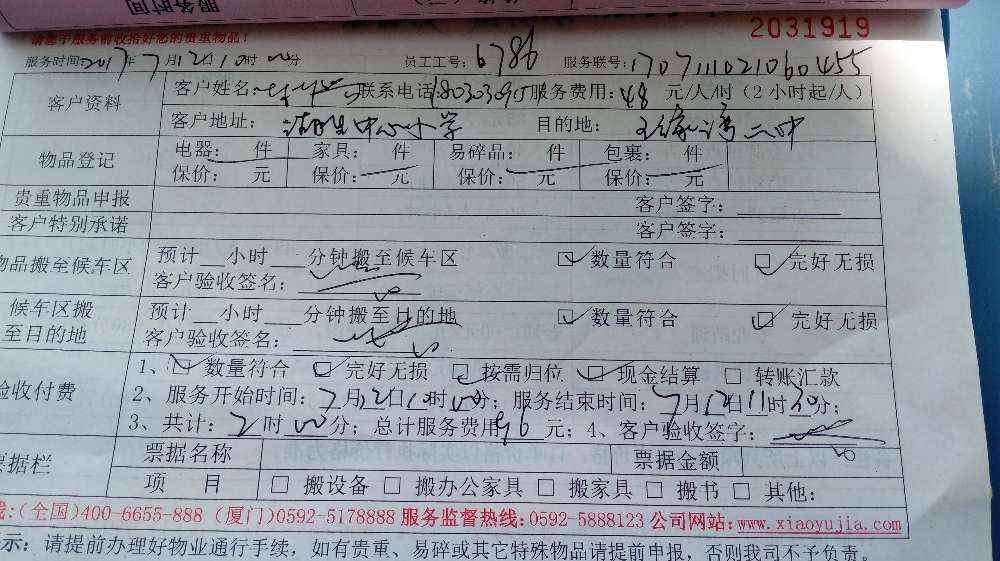 服务时间
2031919
请您于服务前收拾好您的贵重物品!
服务时间:2017年7月12日10时00分 员工工号:6786 服务联号:170711102106045 5
客户资料 客户姓名: 联系电话: 服务费用:48元/人/时(2小时起/人)
客户地址: 中心小学 目的地: 王家湾二中
物品登记 电器: 件 家具: 件 易碎品: 件 包裹: 件
保价: 元 保价: 元 保价: 元 保价: 元
贵重物品申报 客户签字:
客户特别承诺 客户签字:
物品搬至候车区 预计 小时 分钟搬至候车区 ☑数量符合 ☑完好无损
客户验收签名:
候车区搬至目的地 预计 小时 分钟搬至目的地 ☑数量符合 ☑完好无损
客户验收签名:
验收付费 1、☑数量符合 ☑完好无损 ☑按需归位 ☑现金结算 □转账汇款
2、服务开始时间:7月12日10时00分;服务结束时间:7月12日11时30分;
3、共计:2时00分;总计服务费用96元;4、客户验收签字:
票据栏 票据名称 票据金额
项 目 □搬设备 □搬办公家具 □搬家具 □搬书 □其他:
线:(全国)400-6655-888 (厦门)0592-5178888 服务监督热线:0592-5888123 公司网站:www.xiaoyujia.com
示: 请提前办理好物业通行手续,如有贵重、易碎或其它特殊物品请提前申报,否则我司不予负责。